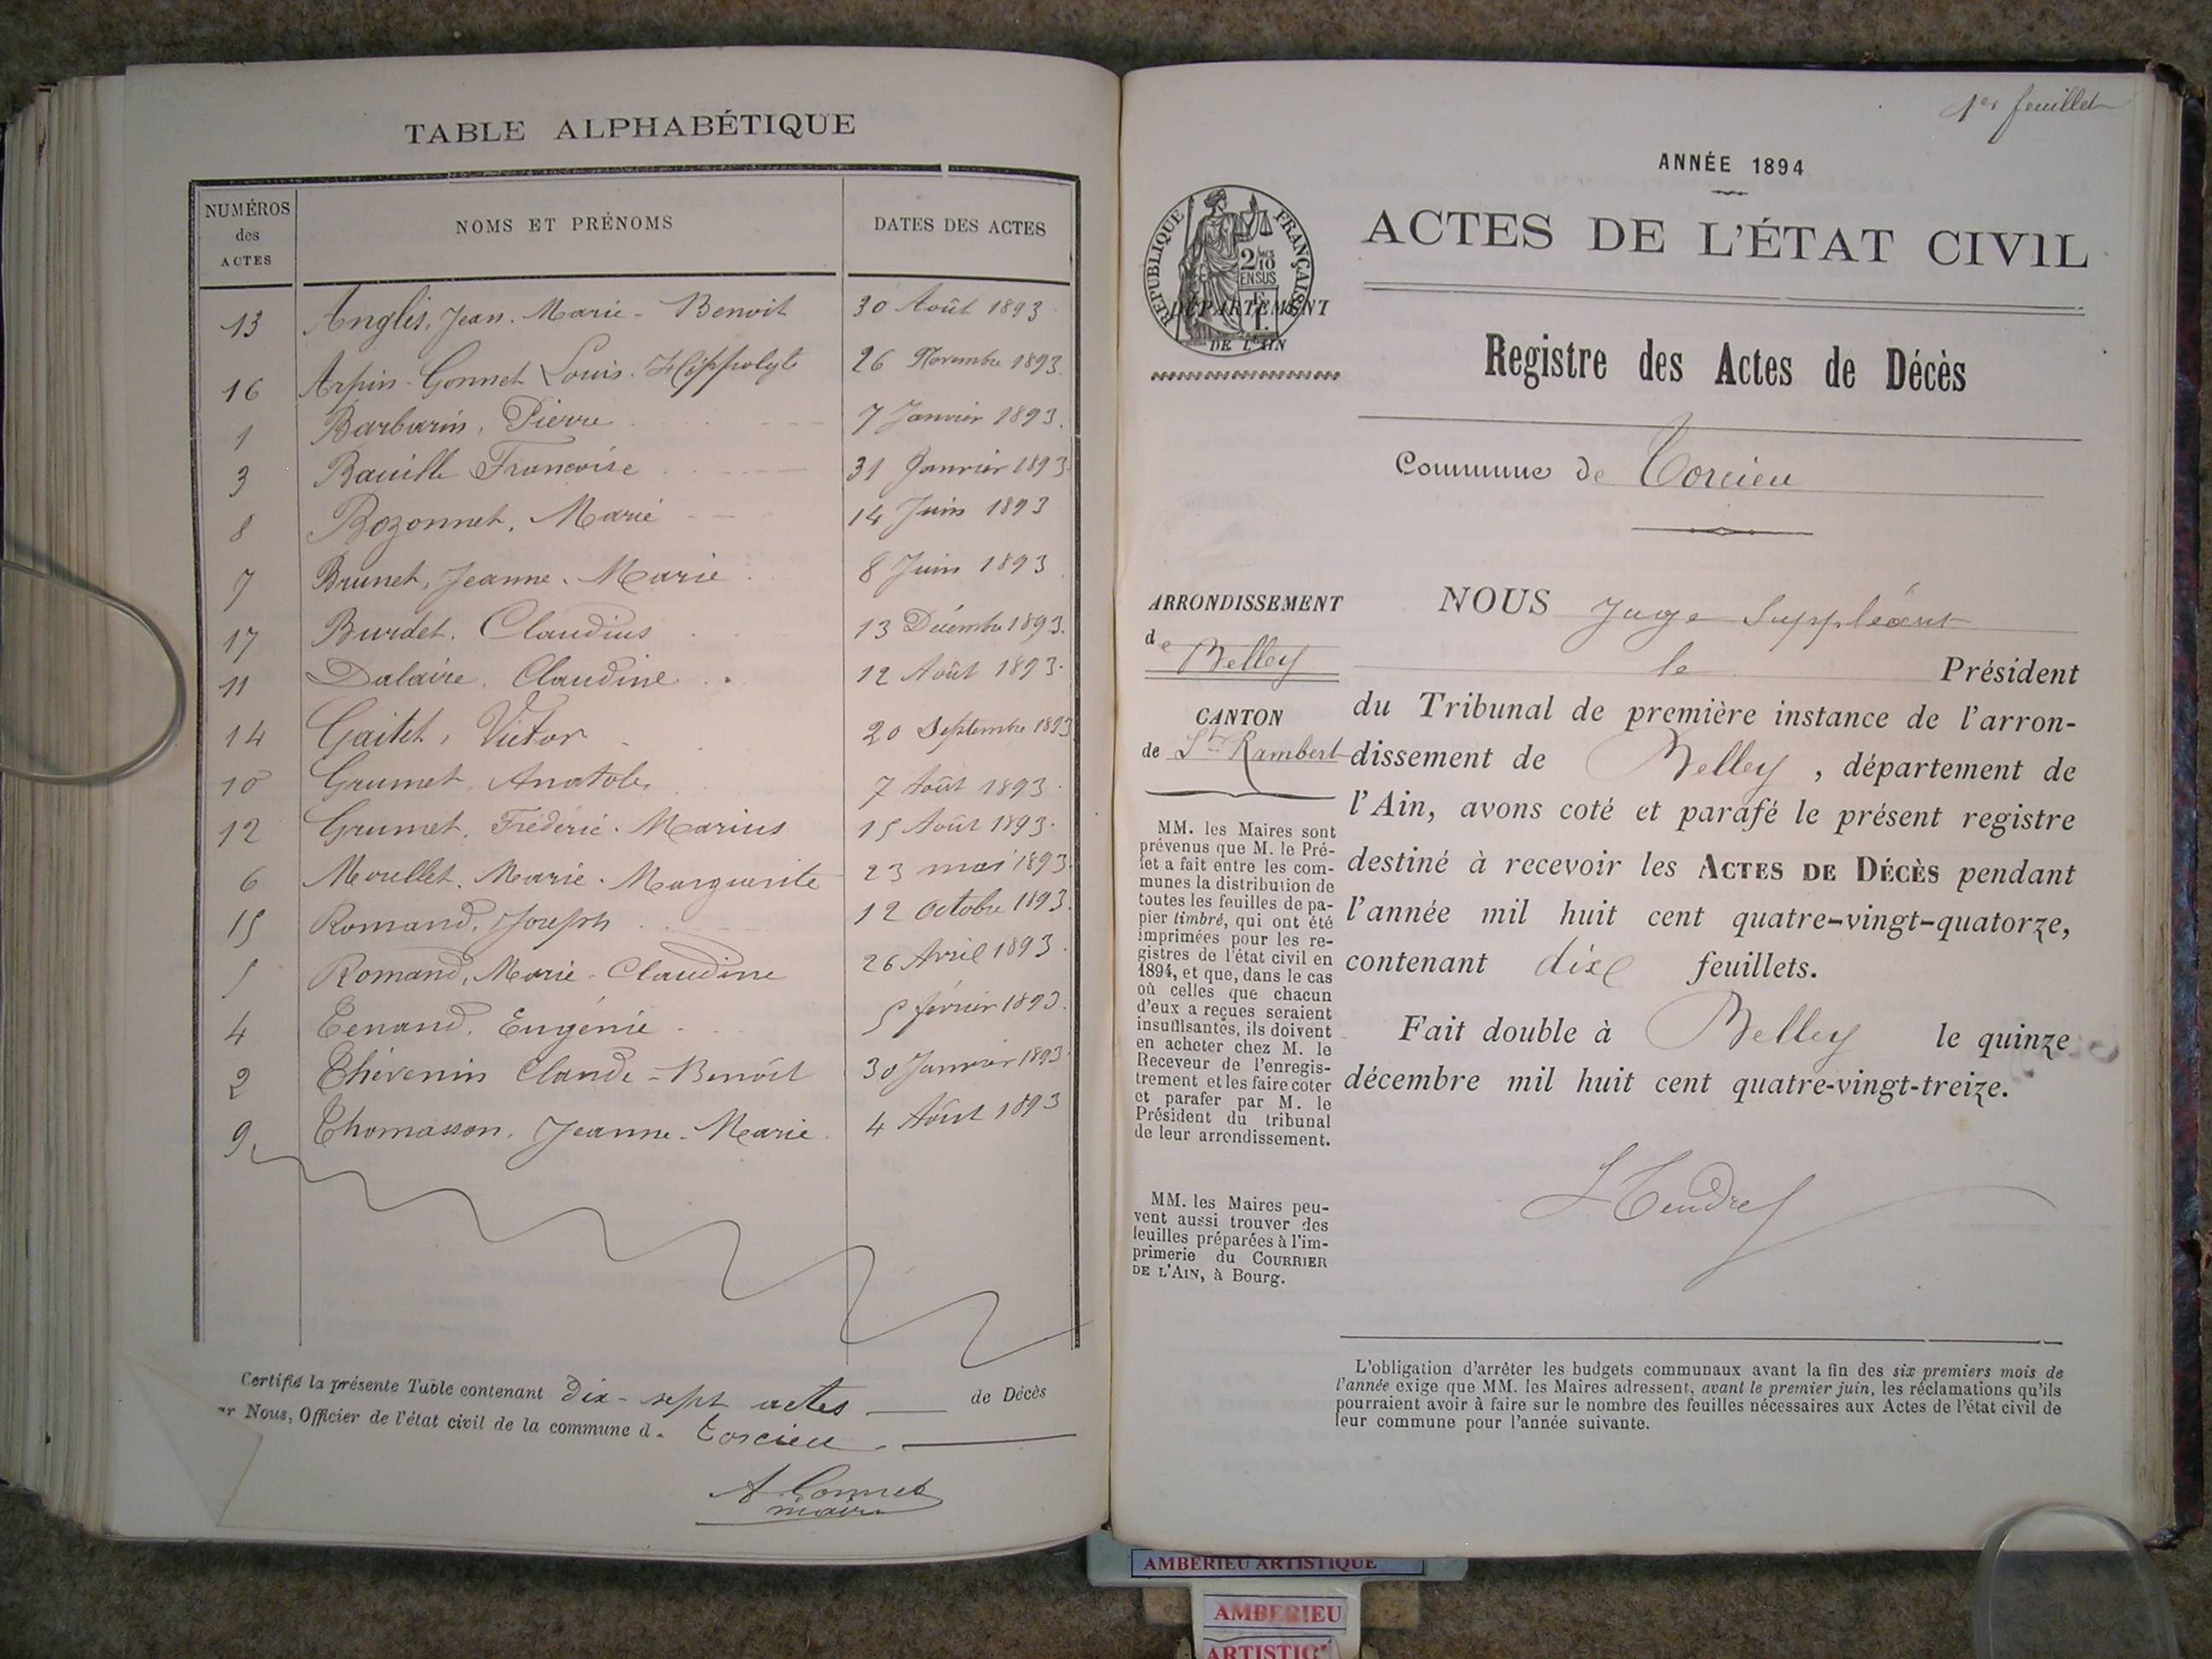 TABLE ALPHABÉTIQUE
NUMÉROS des ACTES NOMS ET PRÉNOMS DATES DES ACTES
13 Anglis, Jean-Marie-Benoit 30 Août 1893
16 Arpin-Gonnet Louis-Hippolyte 26 Novembre 1893.
1 Barbarin, Pierre 7 Janvier 1893.
3 Françoise 31 Janvier 1893
8 Bozonnet, Marie 14 Juin 1893
7 Brunet, Jeanne-Marie 8 Juin 1893
17 Burdet, Claudius 13 Décembre 1893.
11 Dalaire, Claudine 12 Août 1893.
14 Gaitet, Victor 20 Septembre 1893
10 Grumet, Anatole 7 Août 1893
12 Grumet, Frédéric-Marius 15 Août 1893.
6 Morellet, Marie-Marguerite 23 mai 1893.
15 Romand, Joseph 12 Octobre 1893.
5 Romand, Marie-Claudine 26 Avril 1893.
4 Tenand, Eugénie 5 février 1893.
2 Thévenin Claude-Benoît 30 Janvier 1893
9 Thomasson, Jeanne-Marie 4 Août 1893
Certifié la présente Table contenant dix-sept actes de Décès
ar Nous, Officier de l'état civil de la commune d. Torcieu
A. Gonnet
maire
1er feuillet
ANNÉE 1894
RÉPUBLIQUE FRANÇAISE
2 MES 10 EN SUS
DÉPARTEMENT
DE L'AIN
ACTES DE L'ÉTAT CIVIL
Registre des Actes de Décès
Commune de Torcieu
ARRONDISSEMENT
de Belley
CANTON
de St Rambert
MM. les Maires sont
prévenus que M. le Pré-
fet a fait entre les com-
munes la distribution de
toutes les feuilles de pa-
pier timbré, qui ont été
imprimées pour les re-
gistres de l'état civil en
1894, et que, dans le cas
où celles que chacun
d'eux a reçues seraient
insuffisantes, ils doivent
en acheter chez M. le
Receveur de l'enregis-
trement et les faire coter
et parafer par M. le
Président du tribunal
de leur arrondissement.
MM. les Maires peu-
vent aussi trouver des
feuilles préparées à l'im-
primerie du COURRIER
DE L'AIN, à Bourg.
NOUS Juge Suppléant
le Président
du Tribunal de première instance de l'arron-
dissement de Belley, département de
l'Ain, avons coté et parafé le présent registre
destiné à recevoir les ACTES DE DÉCÈS pendant
l'année mil huit cent quatre-vingt-quatorze,
contenant dix feuillets.
Fait double à Belley le quinze
décembre mil huit cent quatre-vingt-treize.
L'obligation d'arrêter les budgets communaux avant la fin des six premiers mois de
l'année exige que MM. les Maires adressent, avant le premier juin, les réclamations qu'ils
pourraient avoir à faire sur le nombre des feuilles nécessaires aux Actes de l'état civil de
leur commune pour l'année suivante.
AMBERIEU ARTISTIQUE
AMBERIEU
ARTISTIQ